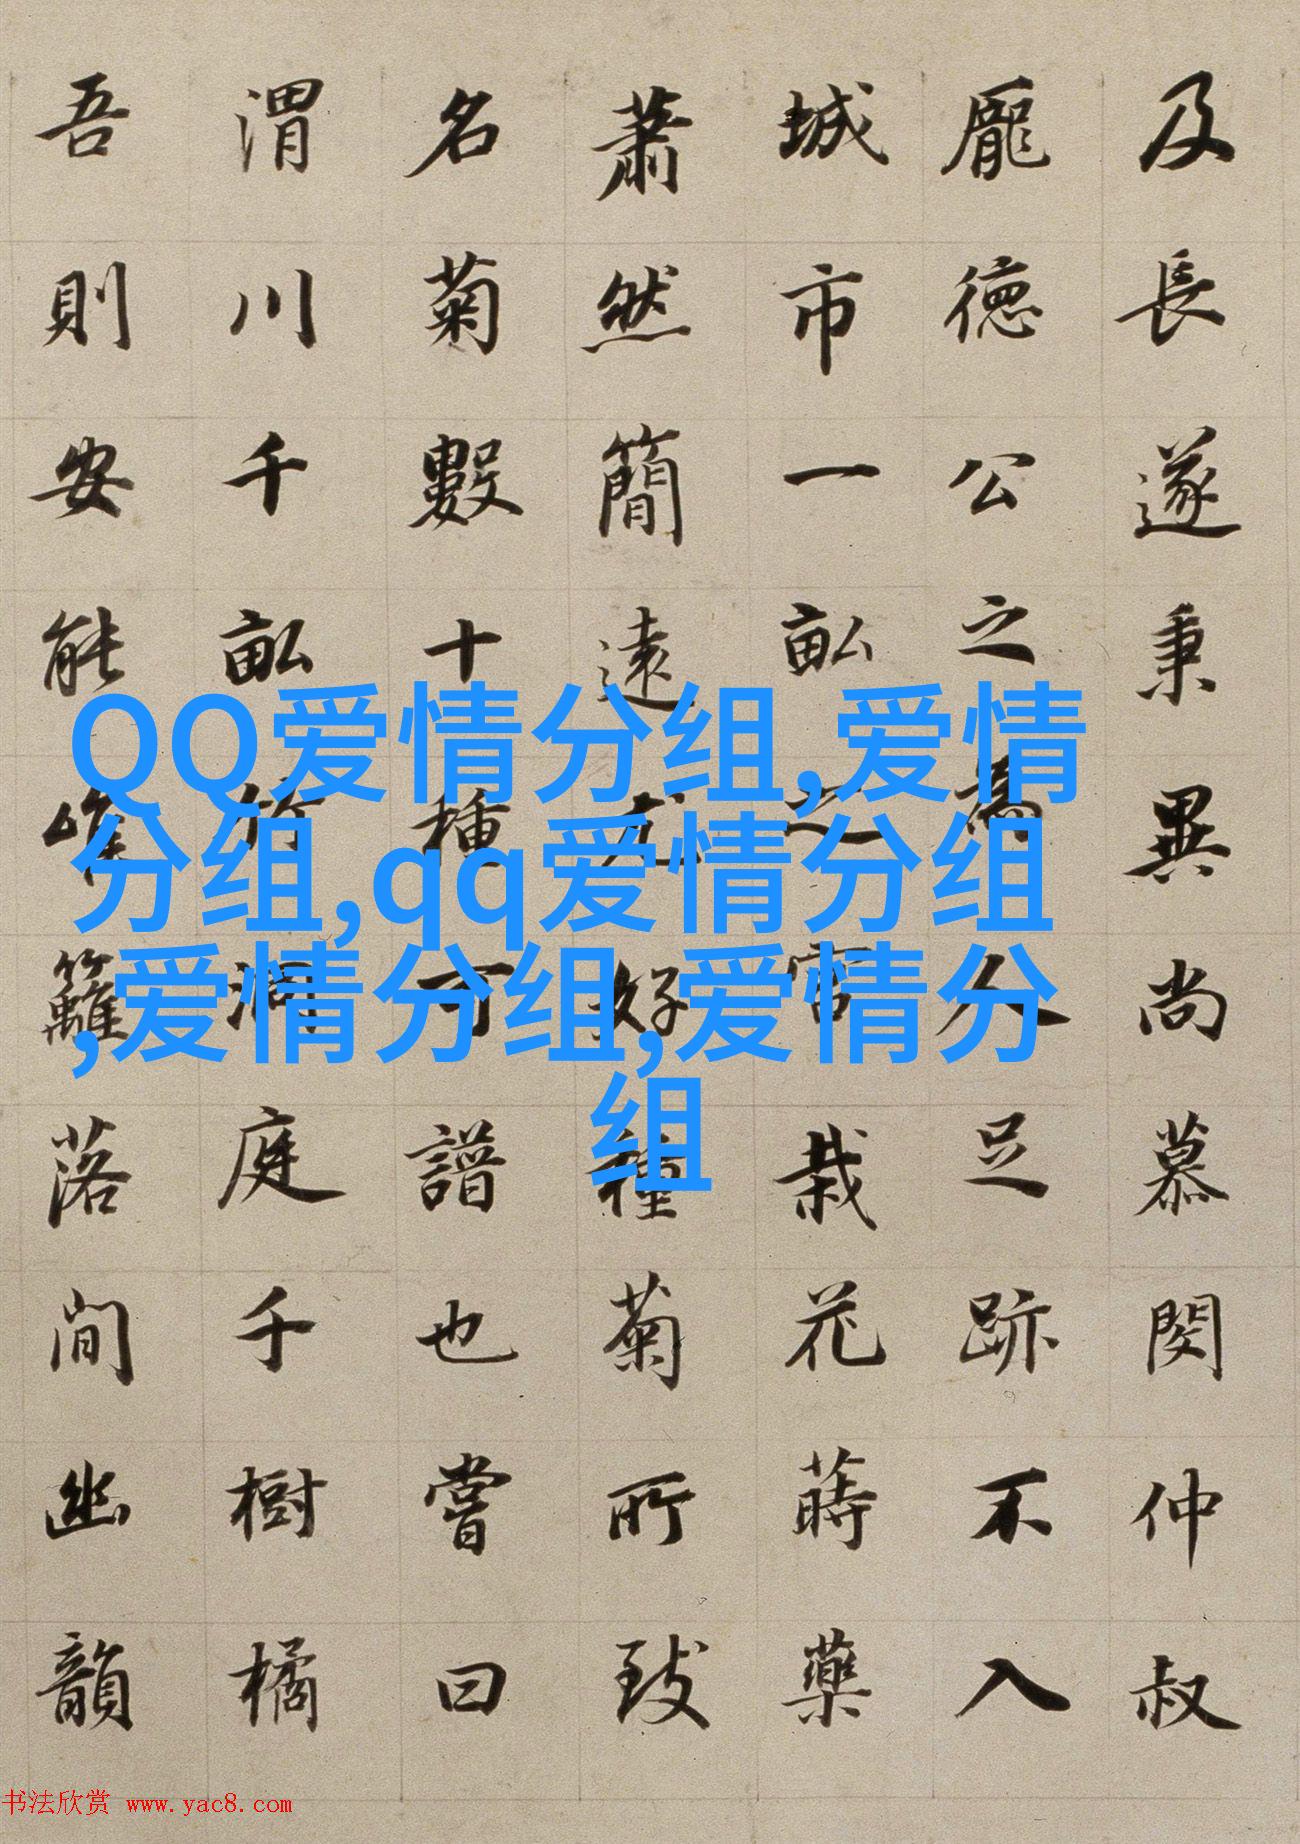 及長遂秉異尚慕閔仲叔
龐德公之為人足跡不入
城市一畝之宮栽花蒔藥
蕭然簡遠尤好種菊所致
名菊數十種可譜也嘗曰
渭川千畝竹洞庭千樹橘
吾則安能唯籬落間幽韻
QQ爱情分组,爱情
分组,qq爱情分组
,爱情分组,爱情分
组
书法欣赏 www.yac8.com